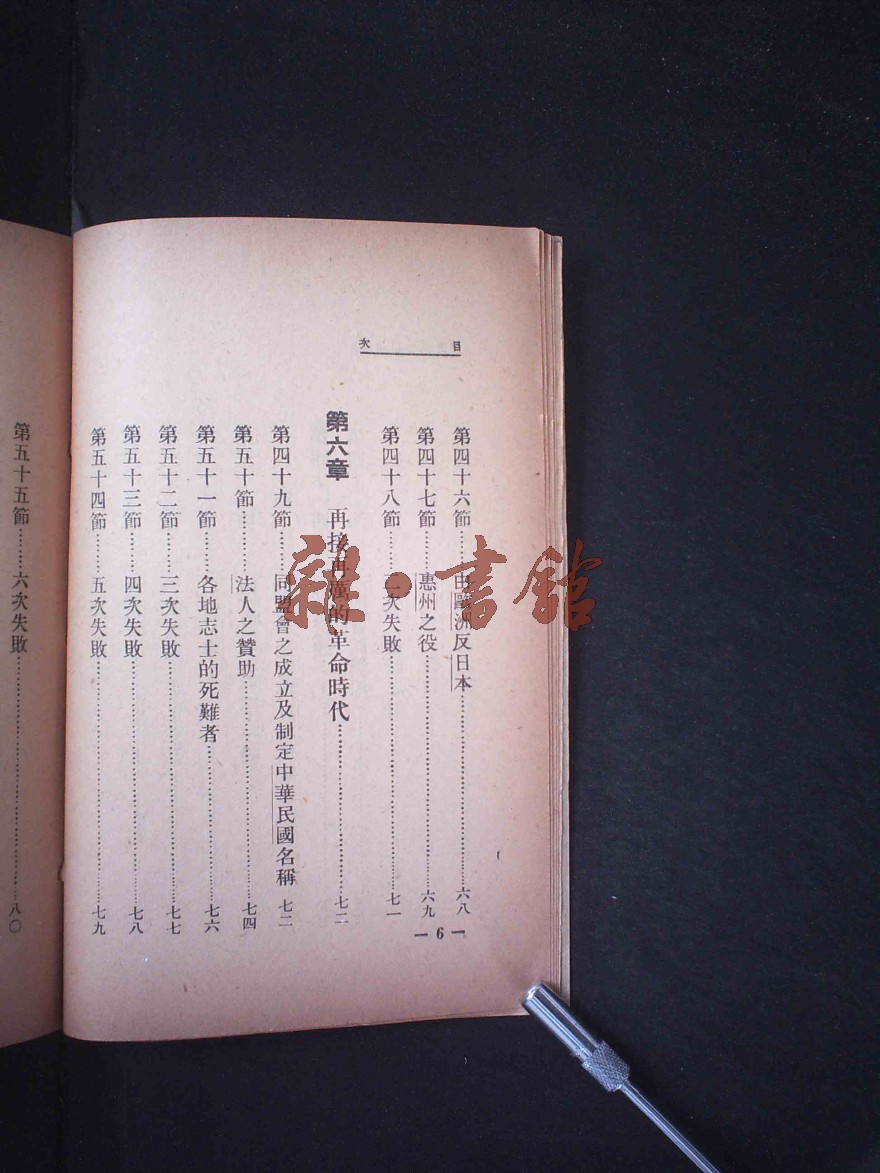 目次
第四十六節……由歐洲反日本……六八
第四十七節……惠州之役……六九
第四十八節……一次失敗……七一
第六章　再接再厲的革命時代……七二
第四十九節……同盟會之成立及制定中華民國名稱　七二
第五十節……法人之贊助……七四
第五十一節……各地志士的死難者……七六
第五十二節……三次失敗……七七
第五十三節……四次失敗……七八
第五十四節……五次失敗……七九
— 6 —
第五十五節……六次失敗……八〇
雜·書館